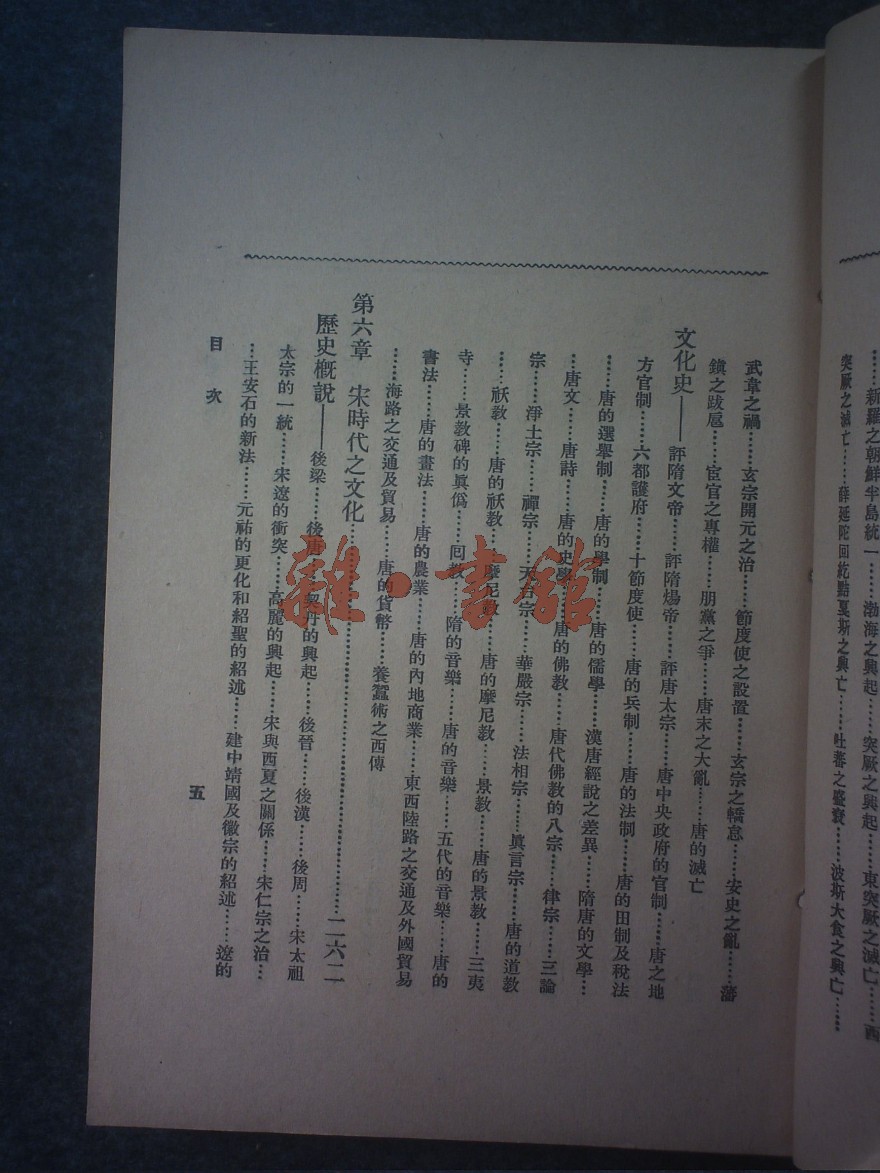 ……新羅之朝鮮半島統一……渤海之興起……突厥之興起……東突厥之滅亡……西
突厥之滅亡……薛延陀回紇黠戛斯之興亡……吐蕃之盛衰……波斯大食之興亡……
武韋之禍……玄宗開元之治……節度使之設置……玄宗之驕怠……安史之亂……藩
鎮之跋扈……宦官之專權……朋黨之爭……唐末之大亂……唐的滅亡
文化史——評隋文帝……評隋煬帝……評唐太宗……唐中央政府的官制……唐之地
方官制……六都護府……十節度使……唐的兵制……唐的法制……唐的田制及稅法
……唐的選舉制……唐的學制……唐的儒學……漢唐經說之差異……隋唐的文學…
…唐文……唐詩……唐的史學……唐的佛教……唐代佛教的八宗……律宗……三論
宗……淨土宗……禪宗……天台宗……華嚴宗……法相宗……眞言宗……唐的道教
……祆教……唐的祆教……摩尼教……唐的摩尼教……景教……唐的景教……三夷
寺……景教碑的眞僞……回教……隋的音樂……唐的音樂……五代的音樂……唐的
書法……唐的畫法……唐的農業……唐的內地商業……東西陸路之交通及外國貿易
……海路之交通及貿易……唐的貨幣……養蠶術之西傳
第六章 宋時代之文化……二六二
歷史概說——後梁……後唐……契丹的興起……後晉……後漢……後周……宋太祖
太宗的一統……宋遼的衝突……高麗的興起……宋與西夏之關係……宋仁宗之治…
…王安石的新法……元祐的更化和紹聖的紹述……建中靖國及徽宗的紹述……遼的
目次
五
雜·書館